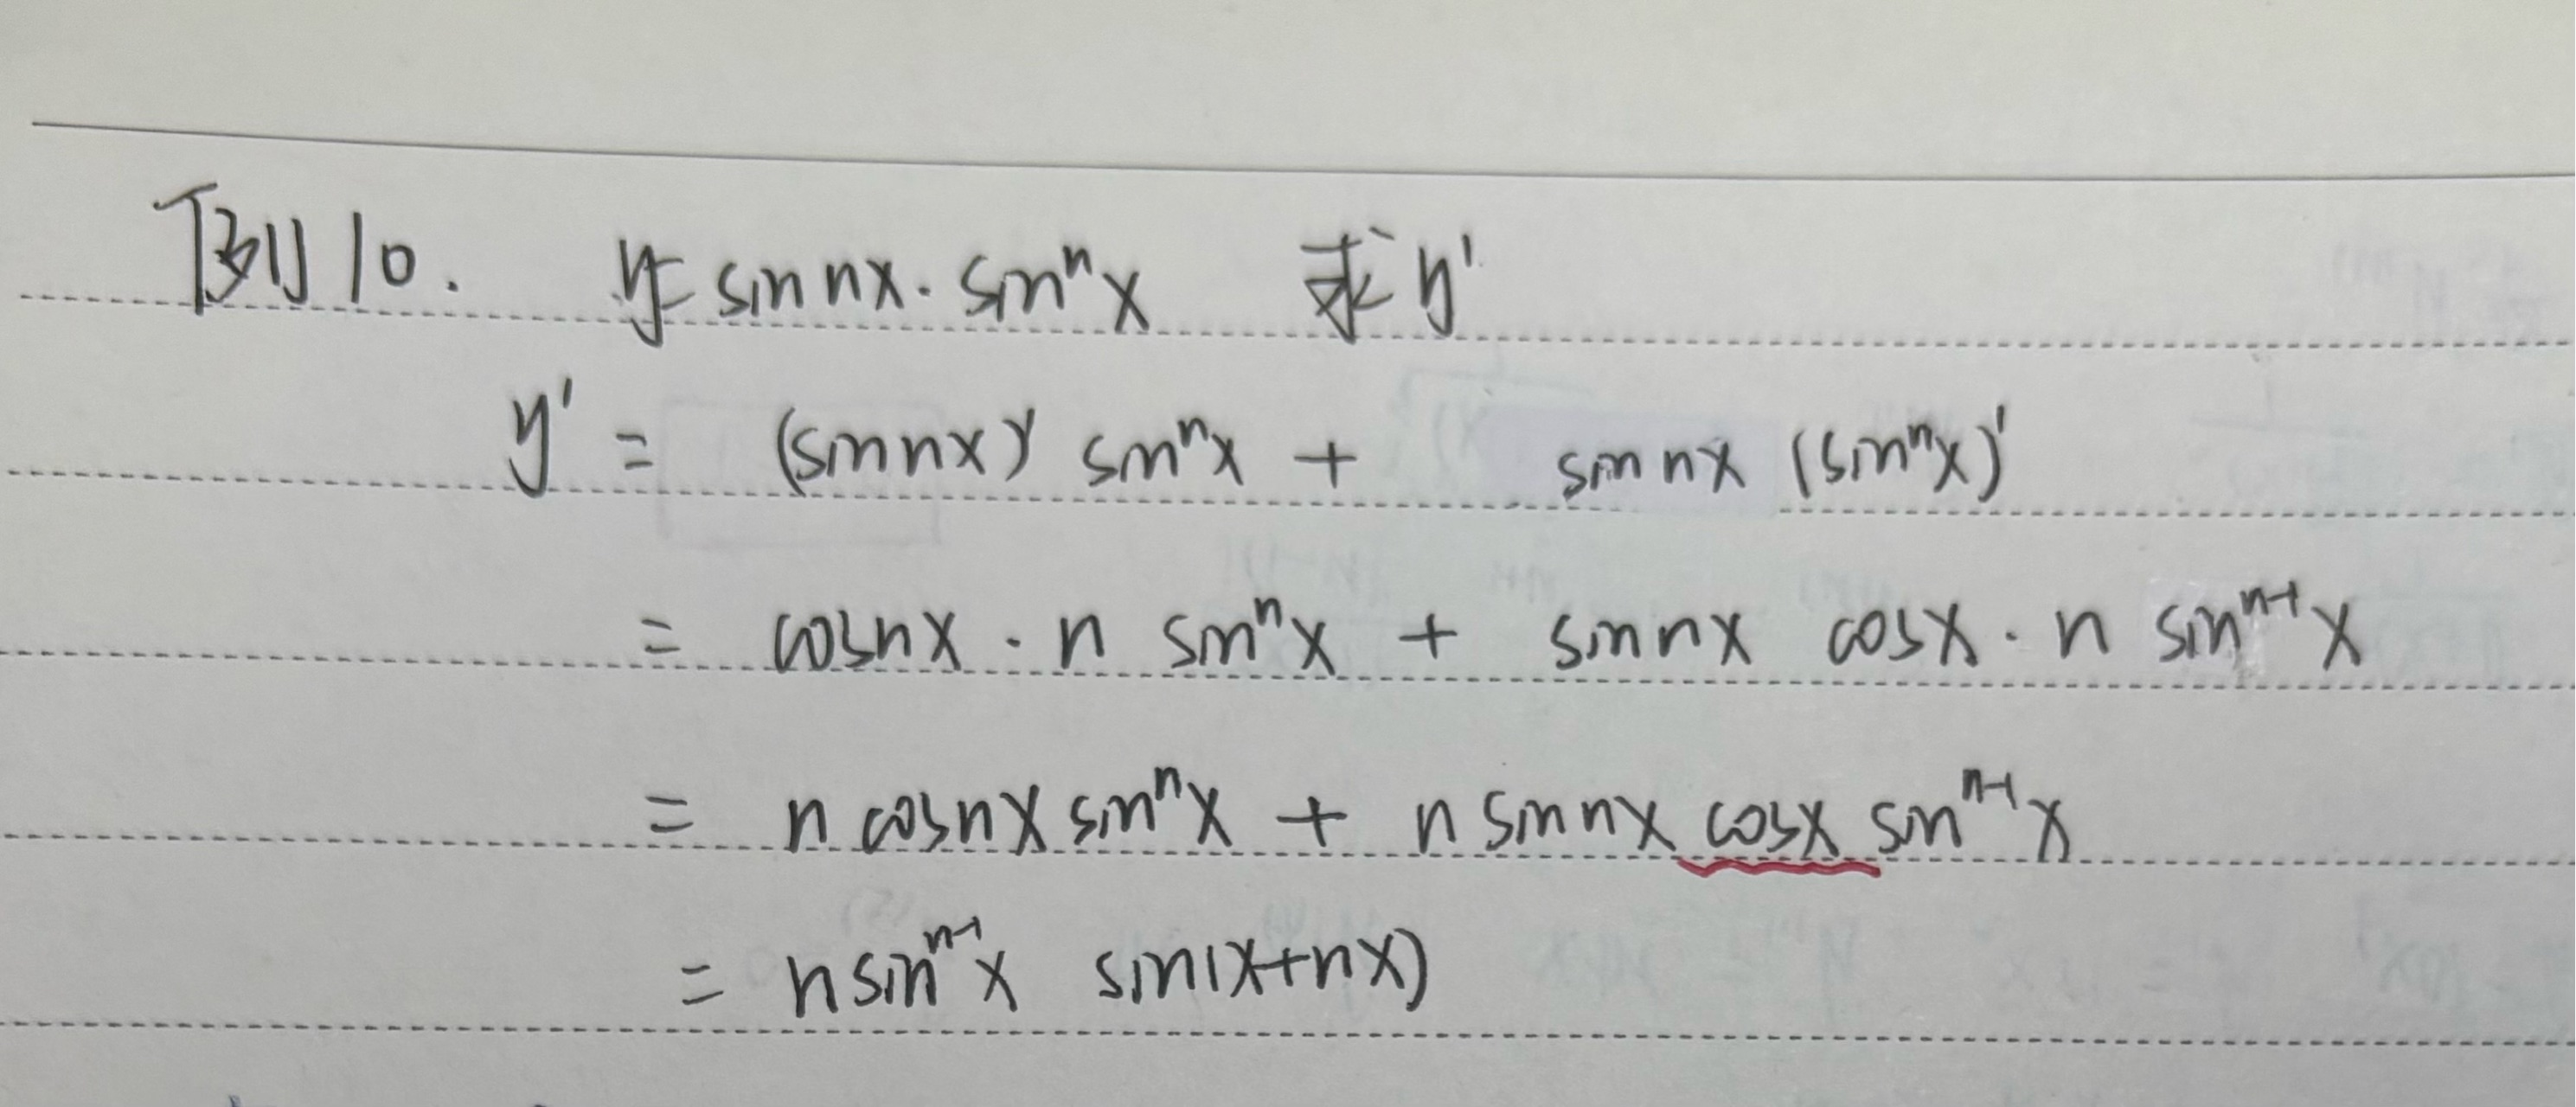 例10. y=sin nx·sinⁿx 求y'
y' = (sin nx)' sinⁿx + sin nx (sinⁿx)'
= cosnx · n sinⁿx + sin nx cosx · n sinⁿ⁻¹x
= n cosnx sinⁿx + n sin nx cosx sinⁿ⁻¹x
= n sinⁿ⁻¹x sin(x+nx)